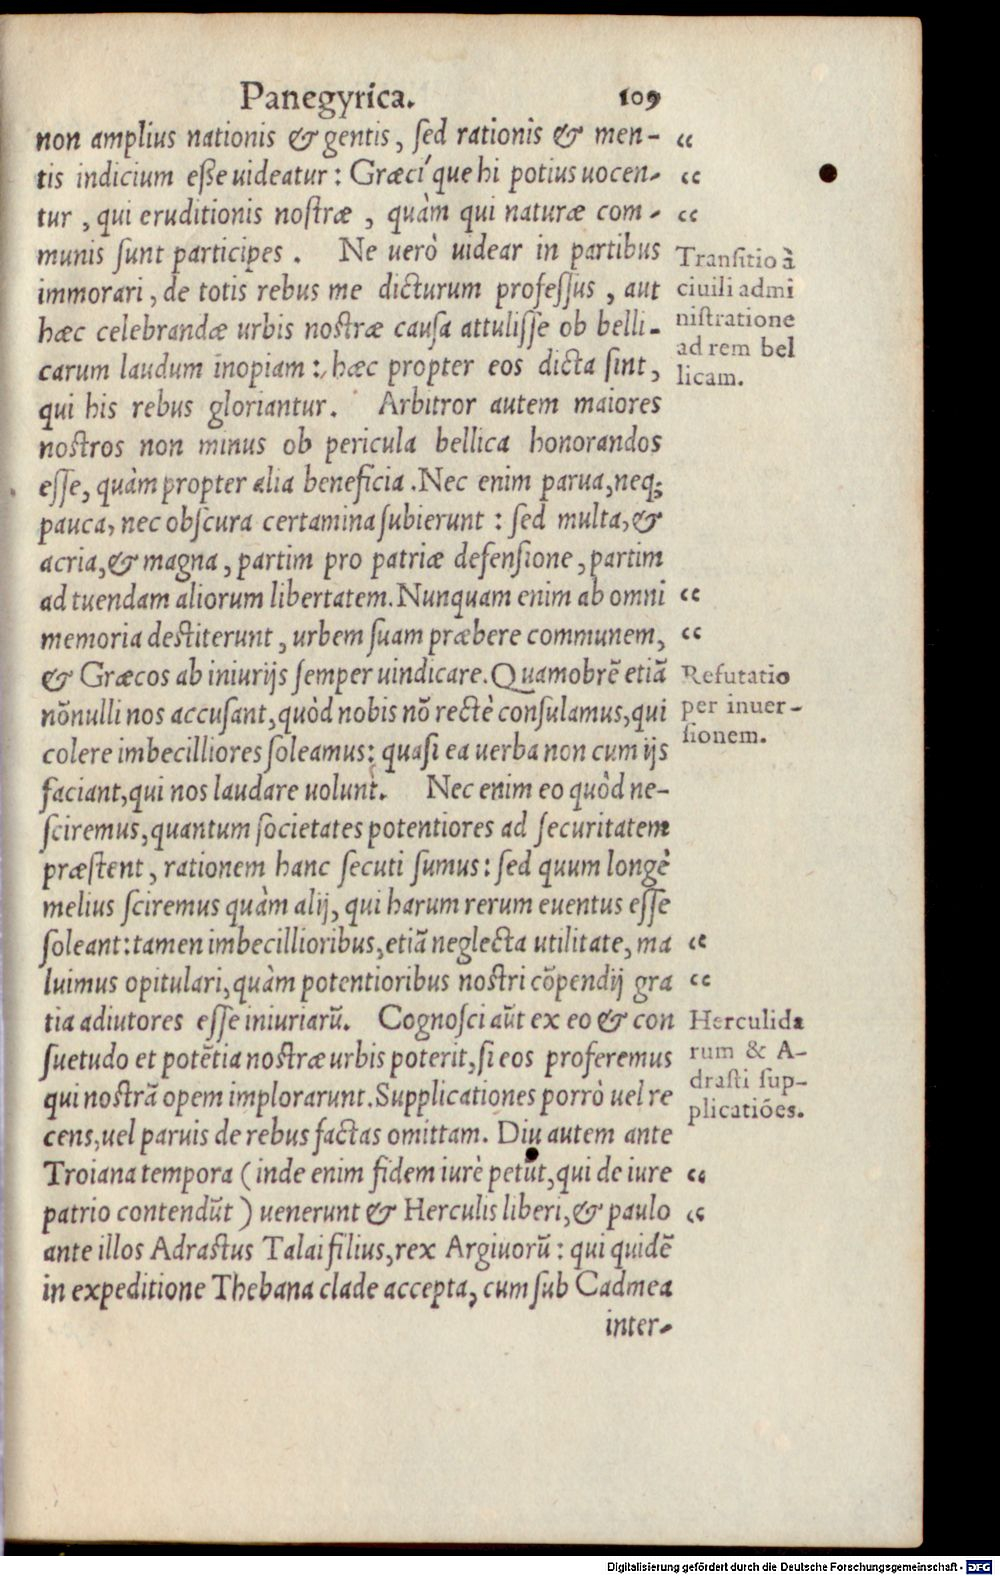 Panegyrica. 109
non amplius nationis & gentis, sed rationis & men- “
tis indicium esse uideatur: Græcíque hi potius uocen- “
tur, qui eruditionis nostræ, quàm qui naturæ com- “
munis sunt participes. Ne uerò uidear in partibus
immorari, de totis rebus me dicturum professus, aut
hæc celebrandæ urbis nostræ causa attulisse ob belli-
carum laudum inopiam: hæc propter eos dicta sint,
qui his rebus gloriantur. Arbitror autem maiores
nostros non minus ob pericula bellica honorandos
esse, quàm propter alia beneficia. Nec enim parua, neq;
pauca, nec obscura certamina subierunt: sed multa, &
acria, & magna, partim pro patriæ defensione, partim
ad tuendam aliorum libertatem. Nunquam enim ab omni “
memoria destiterunt, urbem suam præbere communem, “
& Græcos ab iniurijs semper uindicare. Quamobrē etiā
nōnulli nos accusant, quòd nobis nō rectè consulamus, qui
colere imbecilliores soleamus: quasi ea uerba non cum ijs
faciant, qui nos laudare uolunt. Nec enim eo quòd ne-
sciremus, quantum societates potentiores ad securitatem
præstent, rationem hanc secuti sumus: sed quum longè
melius sciremus quàm alij, qui harum rerum euentus esse
soleant: tamen imbecillioribus, etiā neglecta utilitate, ma “
luimus opitulari, quàm potentioribus nostri cōpendij gra “
tia adiutores esse iniuriarū. Cognosci aūt ex eo & con
suetudo et potētia nostræ urbis poterit, si eos proferemus
qui nostrā opem implorarunt. Supplicationes porrò uel re
cens, uel paruis de rebus factas omittam. Diu autem ante
Troiana tempora (inde enim fidem iurè petūt, qui de iure “
patrio contendūt) uenerunt & Herculis liberi, & paulo “
ante illos Adrastus Talai filius, rex Argiuorū: qui quidē
in expeditione Thebana clade accepta, cum sub Cadmea
inter-
Transitio à
ciuili admi
nistratione
ad rem bel
licam.
Refutatio
per inuer-
sionem.
Herculida
rum & A-
drasti sup-
plicatiões.
Digitalisierung gefördert durch die Deutsche Forschungsgemeinschaft - DFG